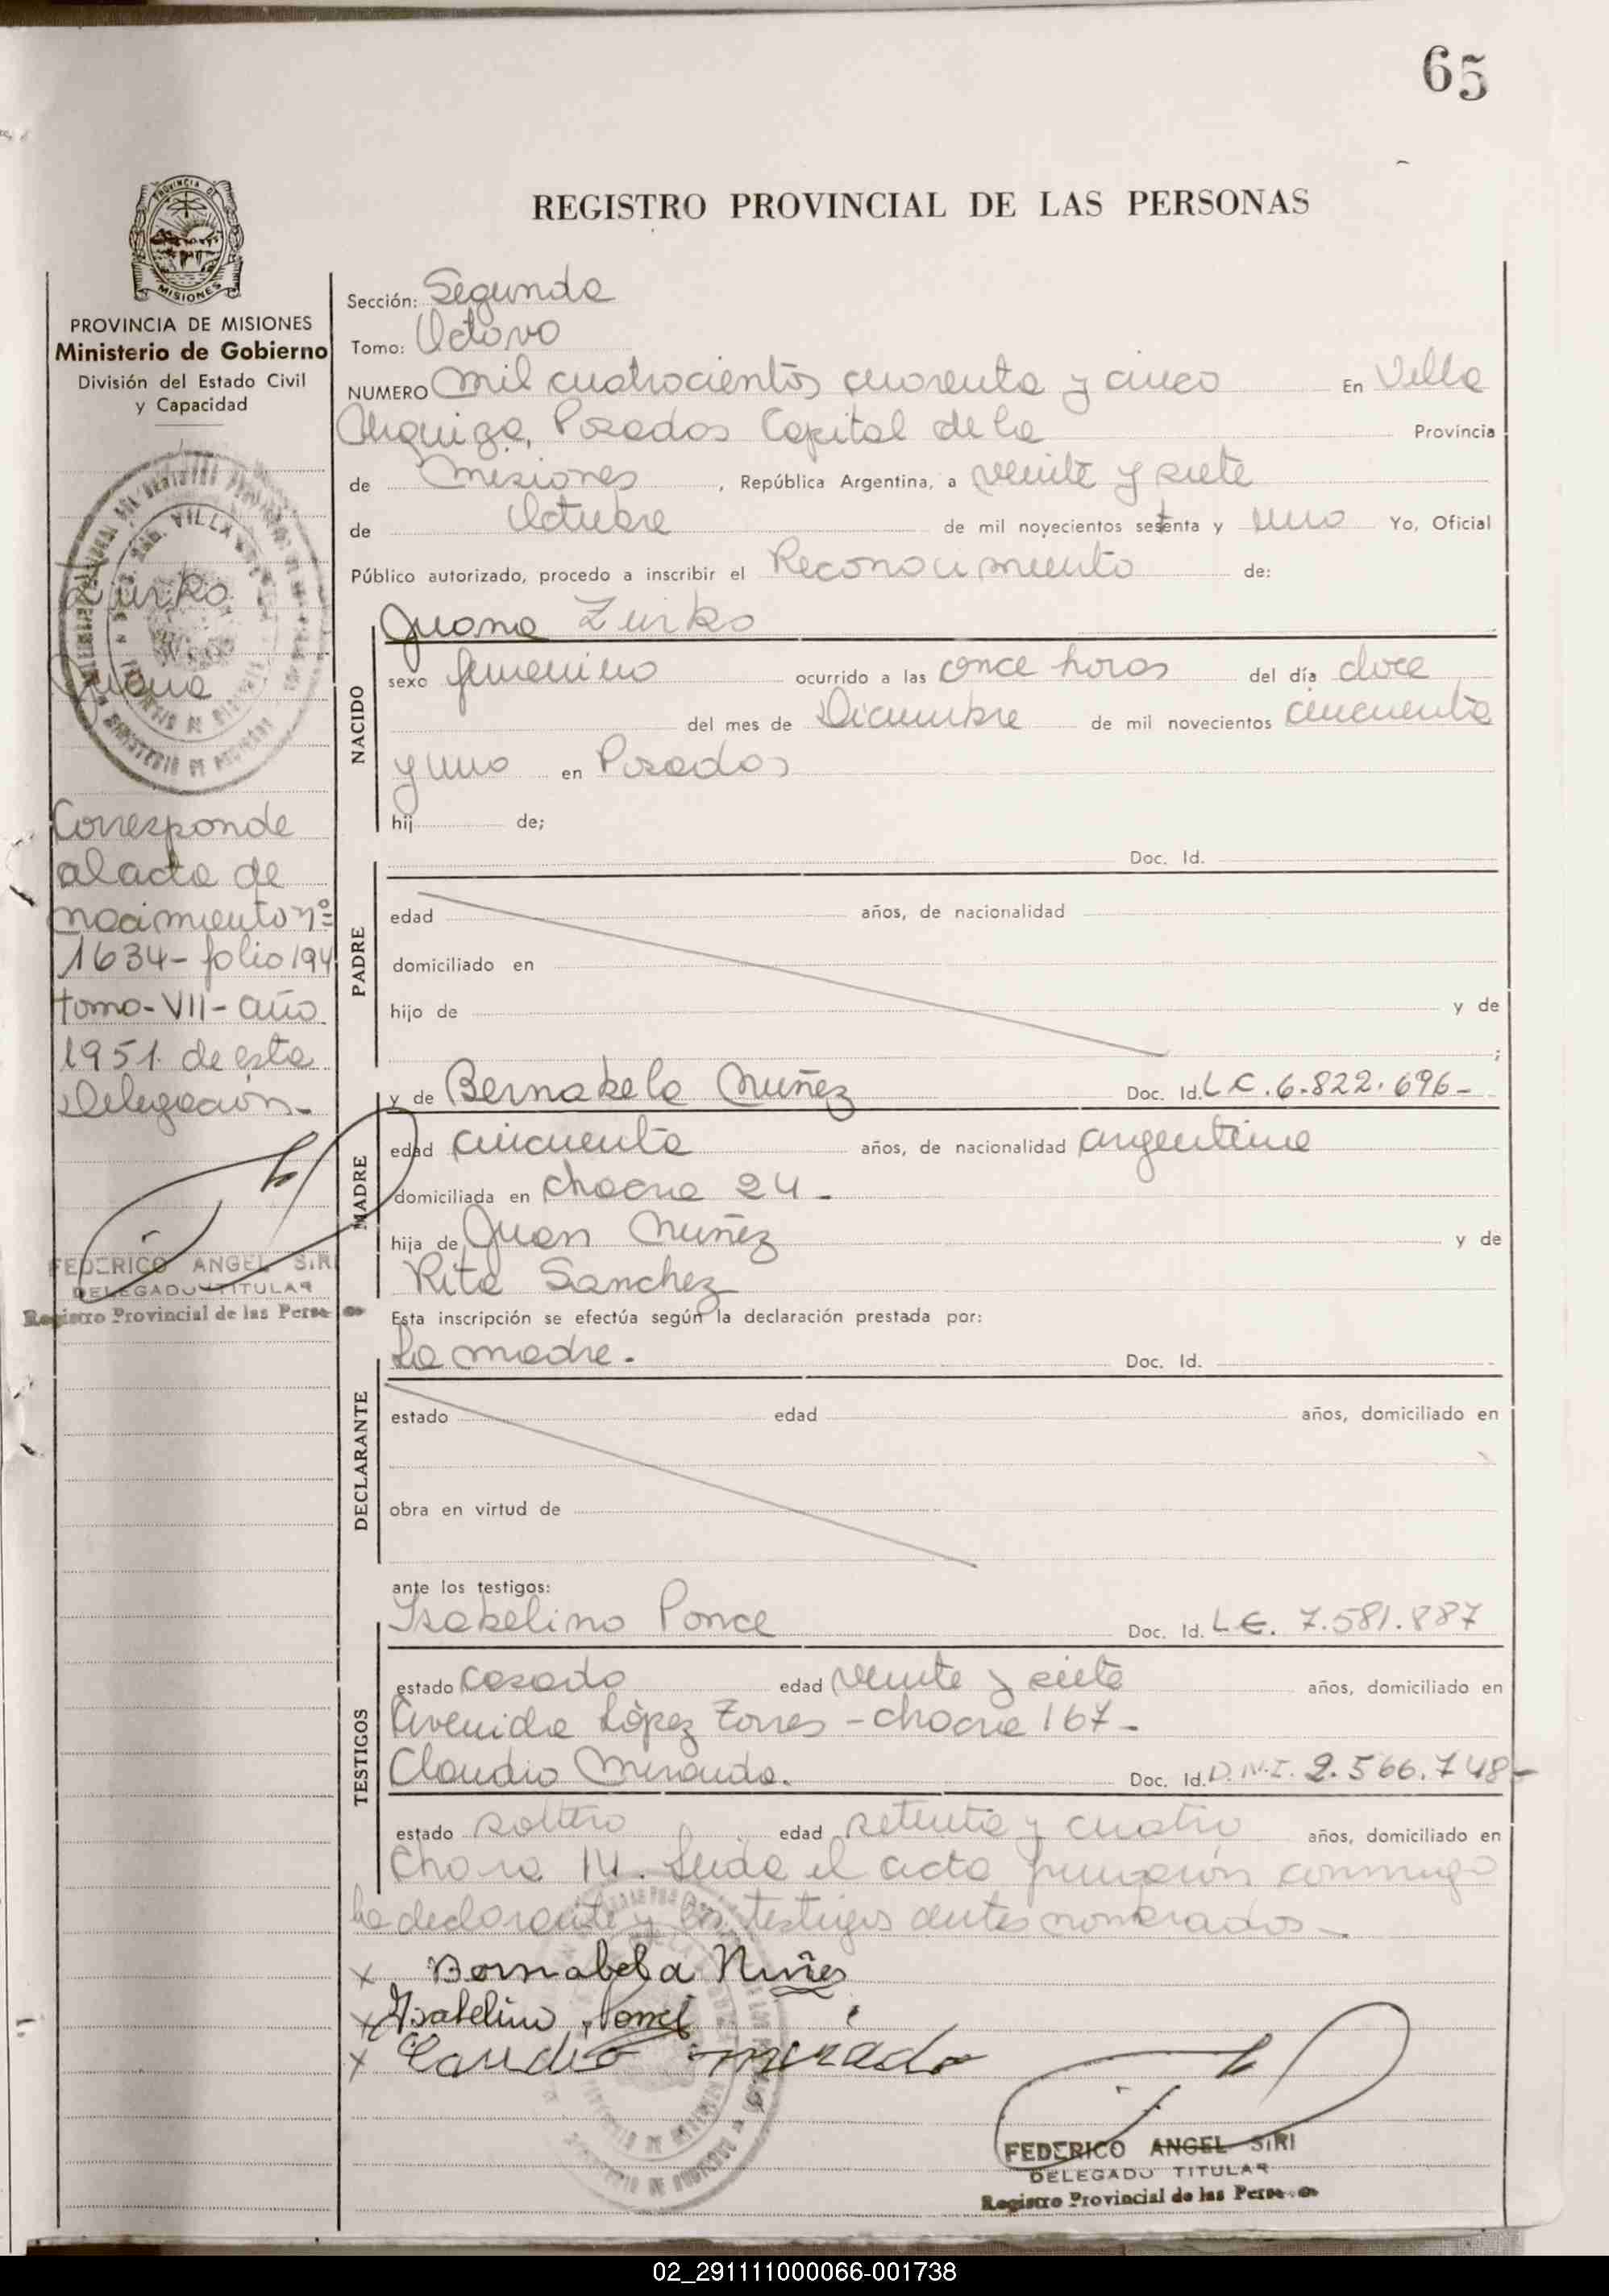 65
REGISTRO PROVINCIAL DE LAS PERSONAS
MISIONES
PROVINCIA DE MISIONES
Ministerio de Gobierno
División del Estado Civil
y Capacidad
Zurko
Juana
Corresponde
al acta de
nacimiento nº
1634 - folio 194
tomo - VII - año
1951 de esta
Delegación.-
FEDERICO ANGEL SIRI
DELEGADO TITULAR
Registro Provincial de las Perso
Sección: Segunda
Tomo: Octavo
NUMERO mil cuatrocientos cuarenta y cinco En Villa
Urquiza, Posadas Capital de la Provincia
de Misiones, República Argentina, a veinte y siete
de Octubre de mil novecientos setenta y uno Yo, Oficial
Público autorizado, procedo a inscribir el Reconocimiento de:
Juana Zurko
NACIDO
sexo femenino ocurrido a las once horas del día doce
del mes de Diciembre de mil novecientos cincuenta
y uno en Posadas
hij de;
Doc. Id.
PADRE
edad años, de nacionalidad
domiciliado en
hijo de y de
;
y de Bernabela Nuñez Doc. Id. L C. 6.822.696-
MADRE
edad cincuenta años, de nacionalidad argentina
domiciliada en chacra 24 -
hija de Juan Nuñez y de
Rita Sanchez
Esta inscripción se efectúa según la declaración prestada por:
La madre. Doc. Id.
DECLARANTE
estado edad años, domiciliado en
obra en virtud de
ante los testigos:
Isabelino Ponce Doc. Id. L E. 7.581.887
TESTIGOS
estado casado edad veinte y siete años, domiciliado en
Avenida López Torres - chacra 167-
Claudio Miranda. Doc. Id. D.N.I. 2.566.748-
estado soltero edad setenta y cuatro años, domiciliado en
Chacra 14. Leida el acta firmaron conmigo
la declarante y los testigos antes nombrados.-
x Bernabela Nuñes
x Isabelino Ponce
x Claudio
FEDERICO ANGEL SIRI
DELEGADO TITULAR
Registro Provincial de las Perso
02_291111000066-001738